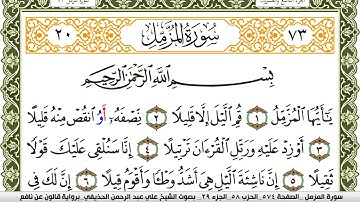 ٧٣ سُورَةُ المُزَّمِّل ٢٠
بِسْمِ اللَّهِ الرَّحْمَٰنِ الرَّحِيمِ
يَٰٓأَيُّهَا ٱلْمُزَّمِّلُ ١ قُمِ ٱلَّيْلَ إِلَّا قَلِيلًا ٢ نِّصْفَهُۥٓ أَوُ ٱنقُصْ مِنْهُ قَلِيلًا
٣ أَوْ زِدْ عَلَيْهِ وَرَتِّلِ ٱلْقُرْءَانَ تَرْتِيلًا ٤ إِنَّا سَنُلْقِى عَلَيْكَ قَوْلًا
ثَقِيلًا ٥ إِنَّ نَاشِئَةَ ٱلَّيْلِ هِىَ أَشَدُّ وَطْـًٔا وَأَقْوَمُ قِيلًا ٦ إِنَّ لَكَ فِي
سورة المزمل الصفحة ٥٧٤ الحزب ٥٨ الجزء ٢٩ بصوت الشيخ علي عبد الرحمن الحذيفي برواية قالون عن نافع